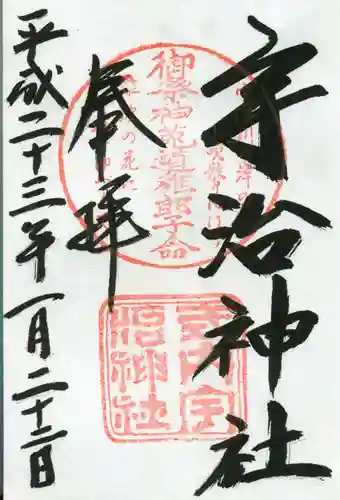 宇治神社
奉拝
平成二十三年一月二十二日
御祭神菟道稚郎子命